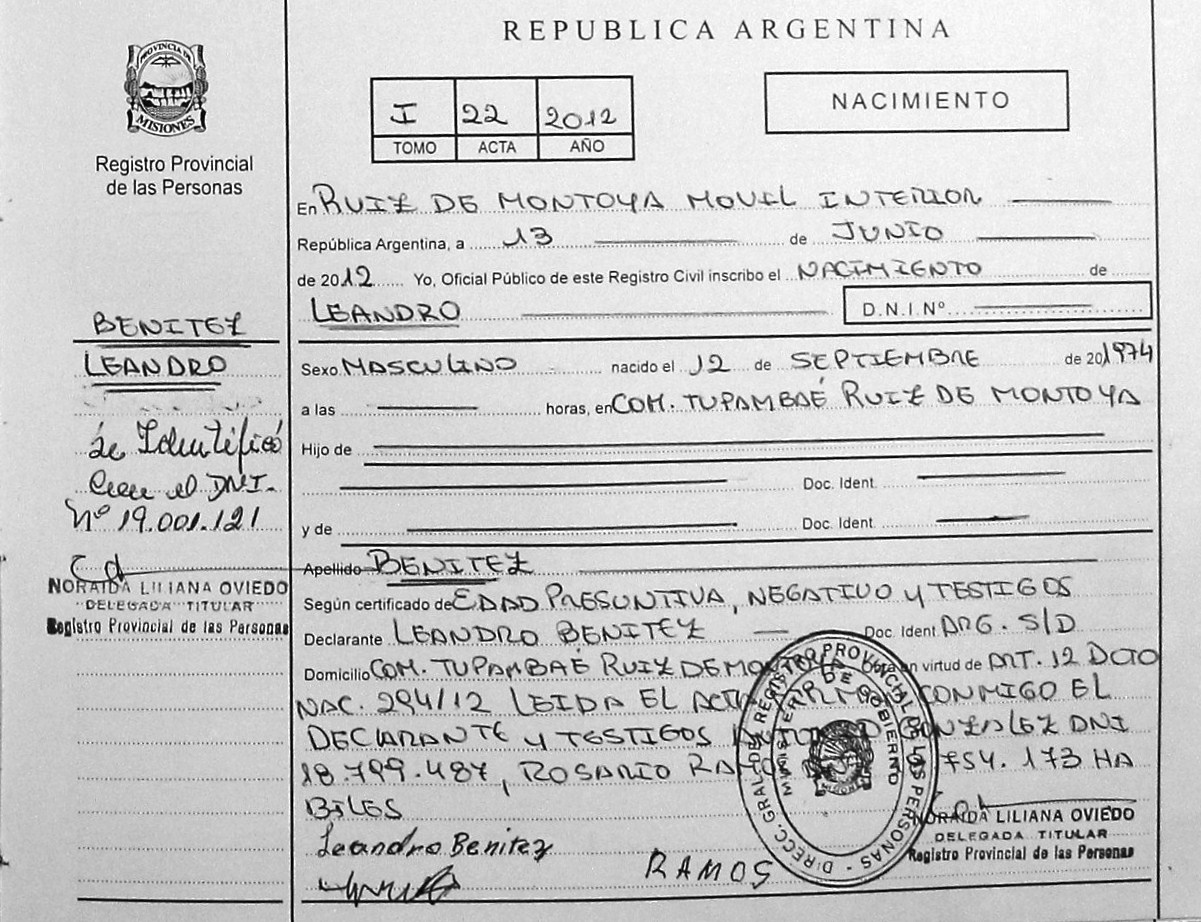 REPUBLICA ARGENTINA
PROVINCIA DE
MISIONES
Registro Provincial
de las Personas
I 22 2012
TOMO ACTA AÑO
NACIMIENTO
En RUIZ DE MONTOYA MOVIL INTERIOR
República Argentina, a 13 de JUNIO
de 2012 Yo, Oficial Público de este Registro Civil inscribo el NACIMIENTO de
LEANDRO D.N.I. Nº
BENITEZ
LEANDRO
se Identificó
con el DNI.
Nº 19.001.121
NORAIDA LILIANA OVIEDO
DELEGADA TITULAR
Registro Provincial de las Personas
Sexo MASCULINO nacido el 12 de SEPTIEMBRE de 201974
a las horas, en COM. TUPAMBAÉ RUIZ DE MONTOYA
Hijo de
Doc. Ident.
y de Doc. Ident.
Apellido BENITEZ
Según certificado de EDAD PRESUNTIVA, NEGATIVO Y TESTIGOS
Declarante LEANDRO BENITEZ Doc. Ident ARG. S/D
Domicilio COM. TUPAMBAÉ RUIZ DE MONTOYA Obra en virtud de ART. 12 DCTO
NAC. 294/12 LEIDA EL ACTA CONMIGO EL
DECLARANTE Y TESTIGOS GONZALEZ DNI
18.799.487, ROSARIO 754.173 HA
BILES
Leandro Benitez
RAMOS
DIRECC. GRAL. DEL REGISTRO PROVINCIAL DE LAS PERSONAS
MINISTERIO DE GOBIERNO
NORAIDA LILIANA OVIEDO
DELEGADA TITULAR
Registro Provincial de las Personas